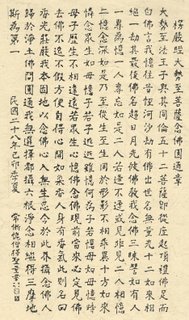 楞嚴經大勢至菩薩念佛圓通章
大勢至法王子與其同倫五十二菩薩即從座起頂禮佛足而
白佛言我憶往昔恒河沙劫有佛出世名無量光十二如來相
繼一劫其最後佛名超日月光彼佛教我念佛三昧譬如有人
一專為憶一人專忘如是二人若逢不逢或見非見二人相憶
二憶念深如是乃至從生至生同於形影不相乖異十方如來
憐念眾生如母憶子若子逃逝雖憶何為子若憶母如母憶時
母子歷生不相違遠若眾生心憶佛念佛現前當來必定見佛
去佛不遠不假方便自得心開如染香人身有香氣此則名曰
香光莊嚴我本因地以念佛心入無生忍今於此界攝念佛人
歸於淨土佛問圓通我無選擇都攝六根淨念相繼得三摩地
斯為第一
民國二十八年己卯夏
常慚愧僧釋